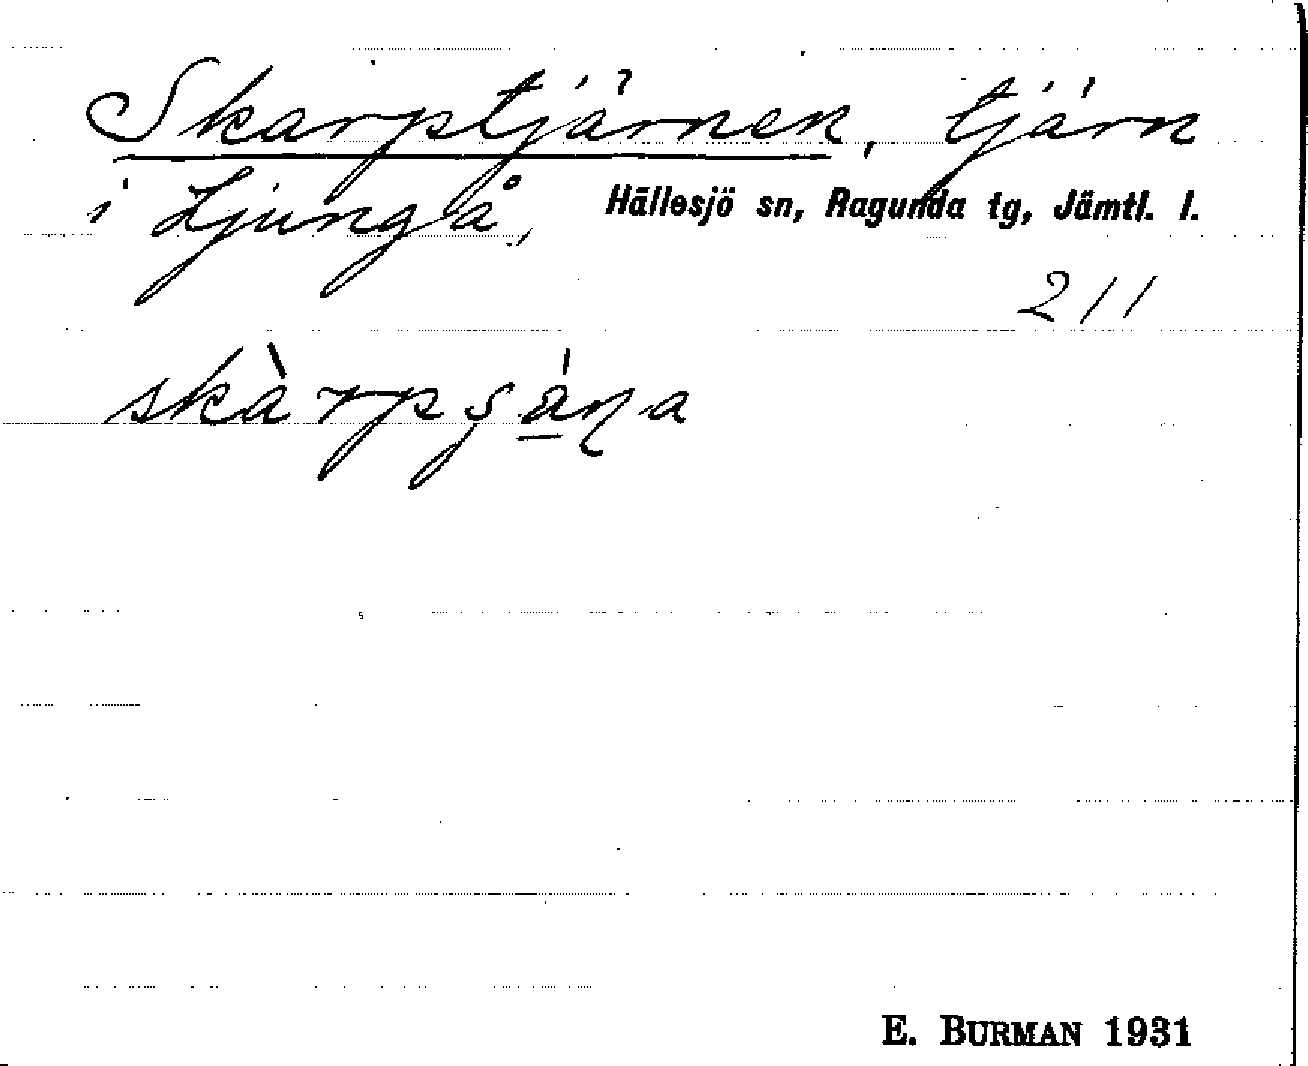 Skarptjärnen, tjärn
i Ljungå, Hällesjö sn, Ragunda tg, Jämtl. l.
211
skàrpşáṇa
E. BURMAN 1931